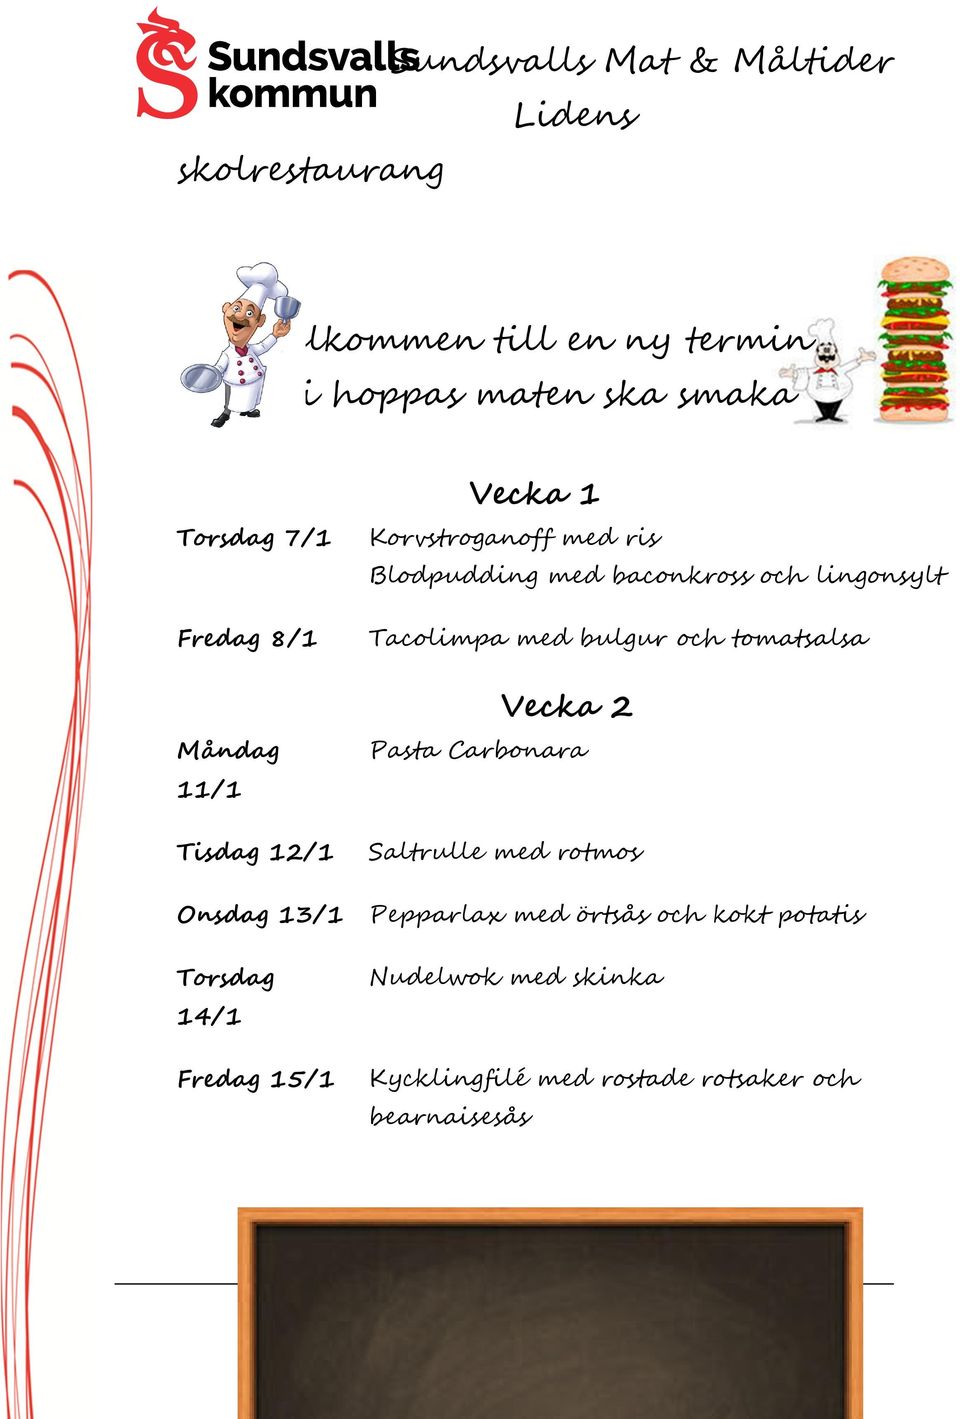 Sundsvalls
kommun
Sundsvalls Mat & Måltider
Lidens
skolrestaurang
lkommen till en ny termin
i hoppas maten ska smaka
Vecka 1
Torsdag 7/1 Korvstroganoff med ris
Blodpudding med baconkross och lingonsylt
Fredag 8/1 Tacolimpa med bulgur och tomatsalsa
Vecka 2
Måndag Pasta Carbonara
11/1
Tisdag 12/1 Saltrulle med rotmos
Onsdag 13/1 Pepparlax med örtsås och kokt potatis
Torsdag Nudelwok med skinka
14/1
Fredag 15/1 Kycklingfilé med rostade rotsaker och
bearnaisesås